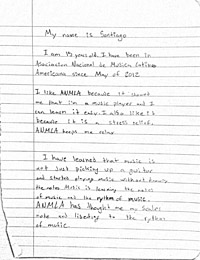 My name is Santiago
I am 13 years old. I have been in
Asociacion Nacional de Musica Latino
Americana since May of 2012
I like ANMLA because it shows
me that I'm a music player and I
can learn it easy. I also like it
because it is a stress relief.
ANMLA keeps me calm.
I have learned that music is
not just picking up a guitar
and started playing music without
the notes. Music is learning the notes
of music and the rythm of music.
ANMLA has thought me my scales
note and listening to the rythm
of music.